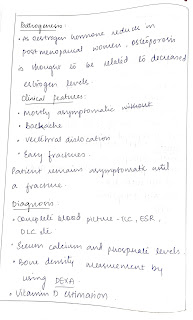 Pathogenesis:
• As oestrogen hormone reduces in
post menopausal women, osteoporosis
is thought to be related to decreased
estrogen levels.
Clinical features:
• Mostly asymptomatic without
• Backache
• Vertebral dislocation
• Easy fractures.
Patient remain asymptomatic until
a fracture.
Diagnosis:
• Complete blood picture - TLC, ESR,
DLC etc
• Serum calcium and phosphate levels
• Bone density measurement by
using DEXA.
• Vitamin D estimation